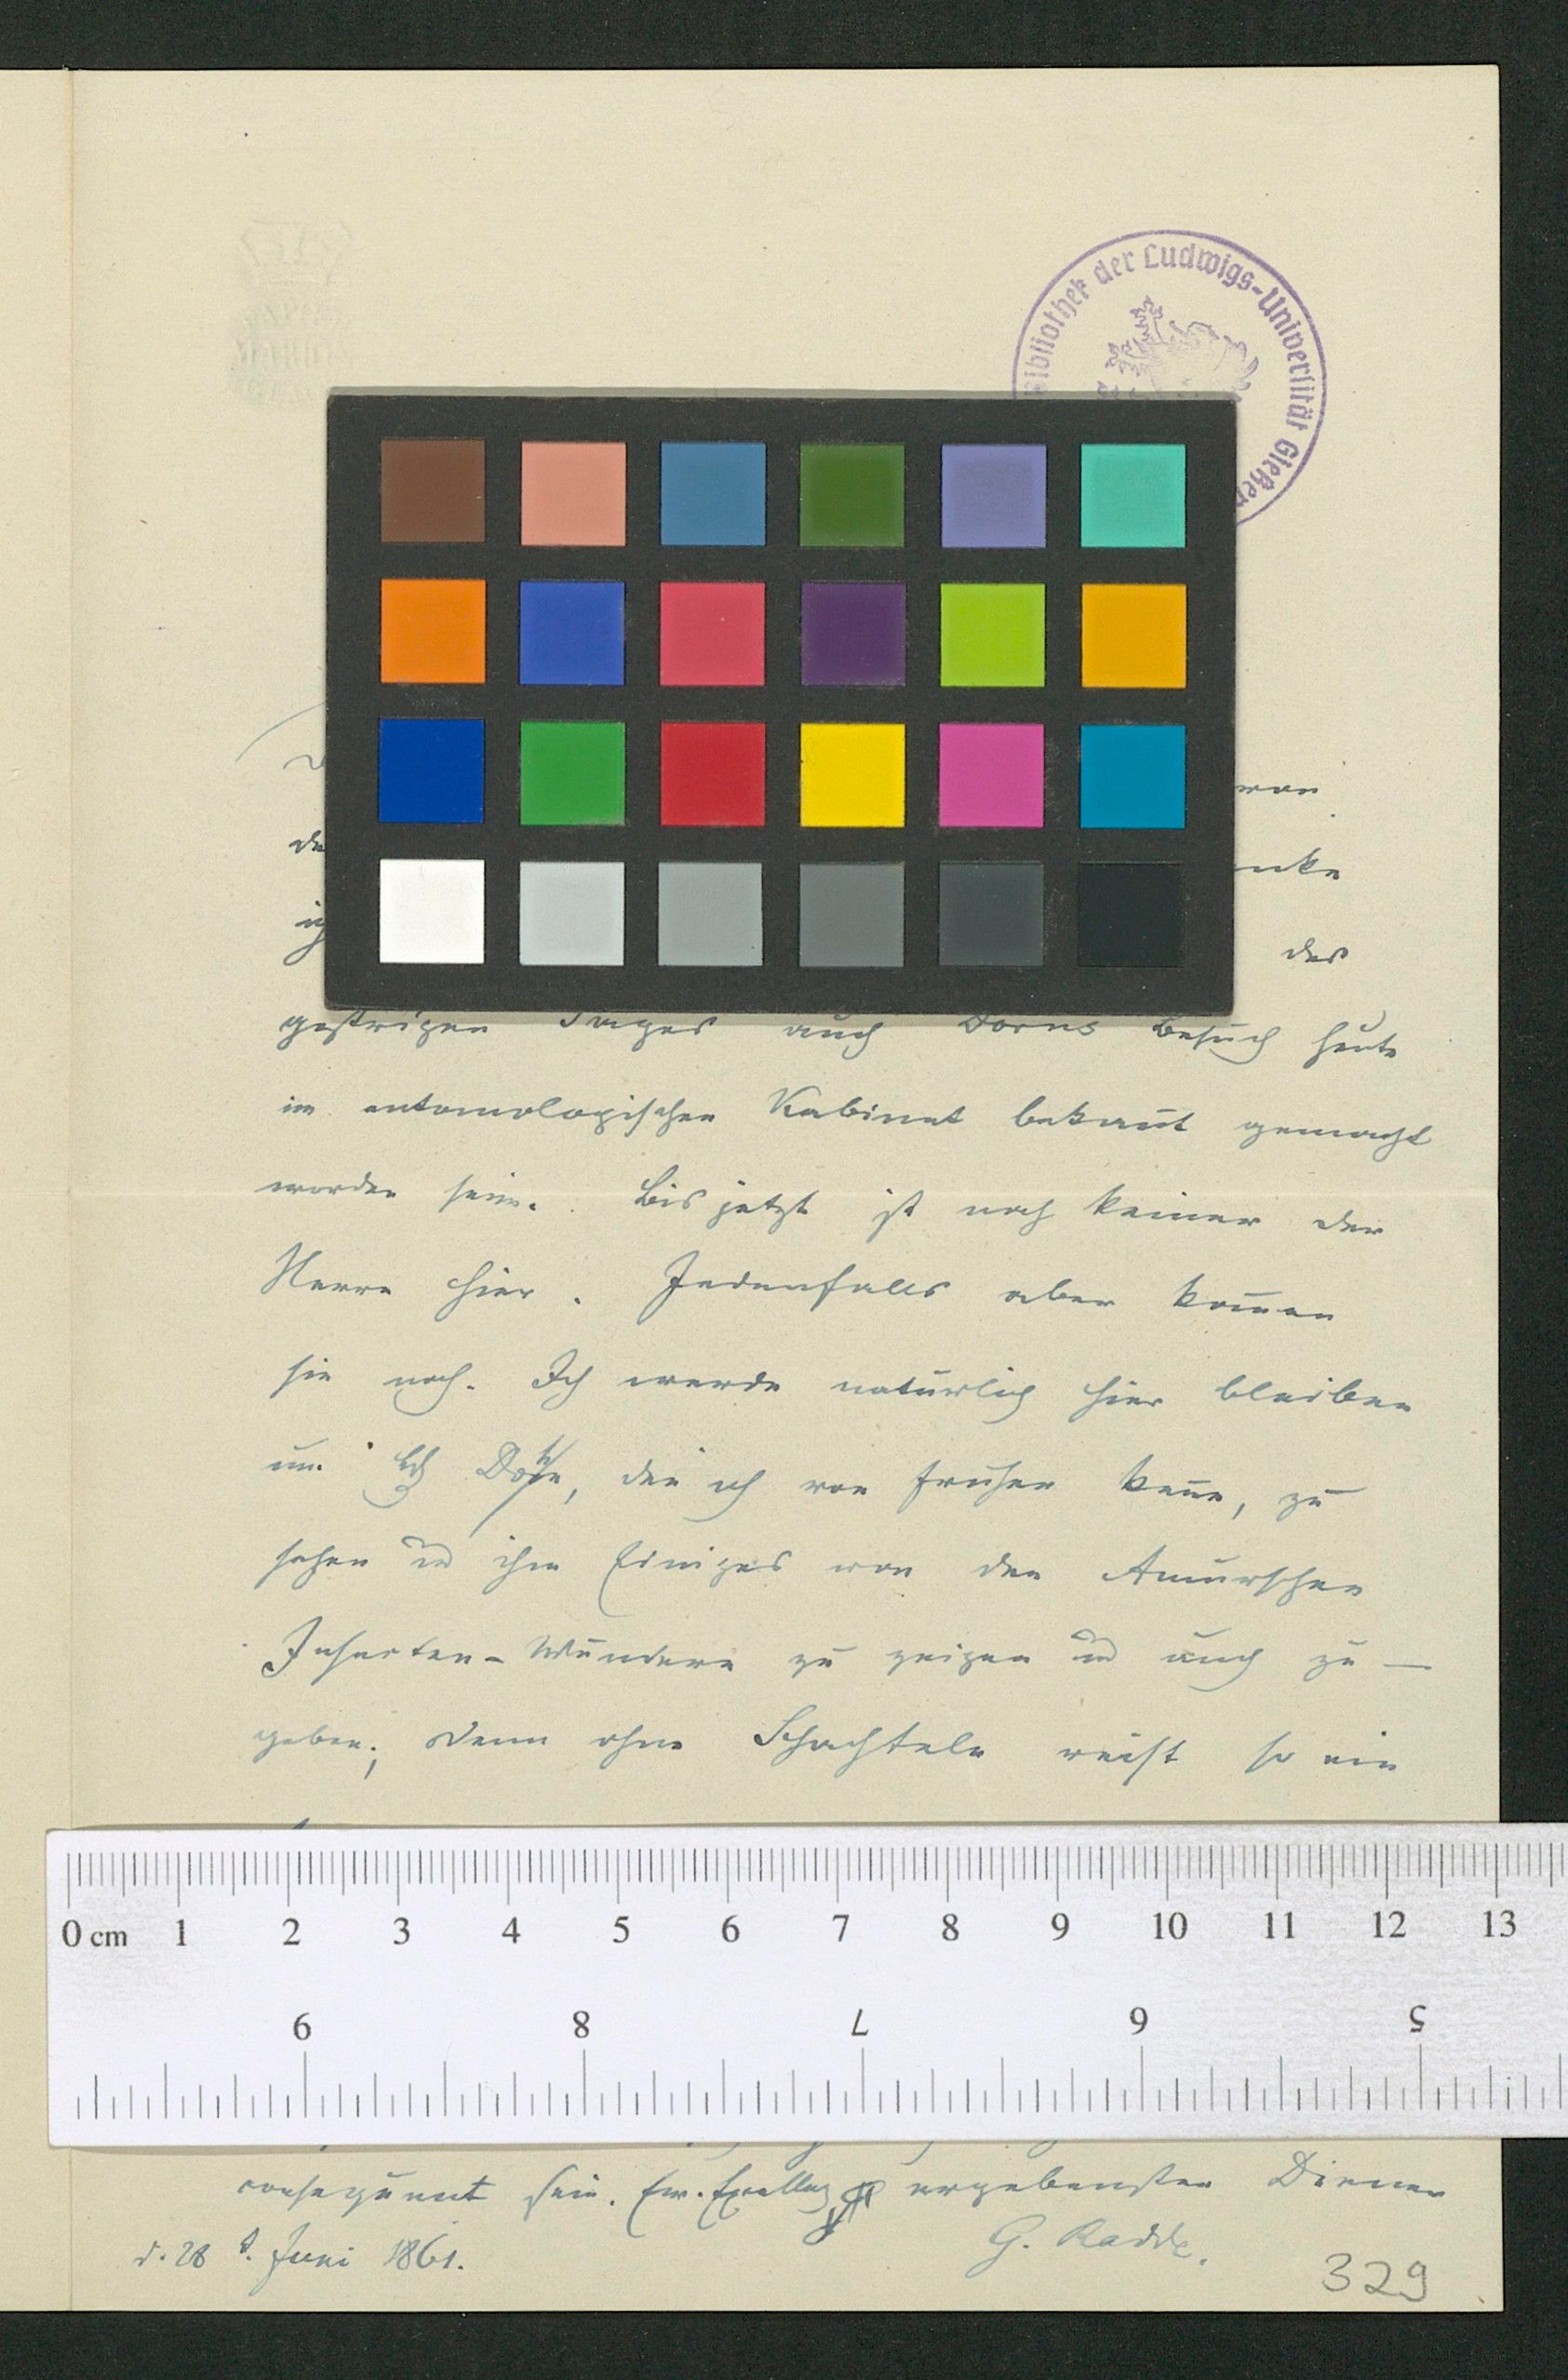 Bibliothek der Ludwigs-Universität Gießen
von
de
nke
ich
des
gestrigen Tages auch Dorns Besuch heute
im entomologischen Kabinet bekan̄t gemacht
worden sein. Bis jetzt ist noch keiner der
Herrn hier. Jedenfalls aber kom̄en
sie noch. Ich werde natürlich hier bleiben
um den ich von früher ken̄e, zu
sehen und ihm Einiges von den Amurschen
Insecten-Wundern zu zeigen und auch zu —
geben; denn ohne Schachteln reist so ein
0 cm 1 2 3 4 5 6 7 8 9 10 11 12 13
9 8 7 6 5
consequent sein. Ew. Excellenz ergebenster Diener
d. 28 t. Juni 1861.
G. Radde.
329